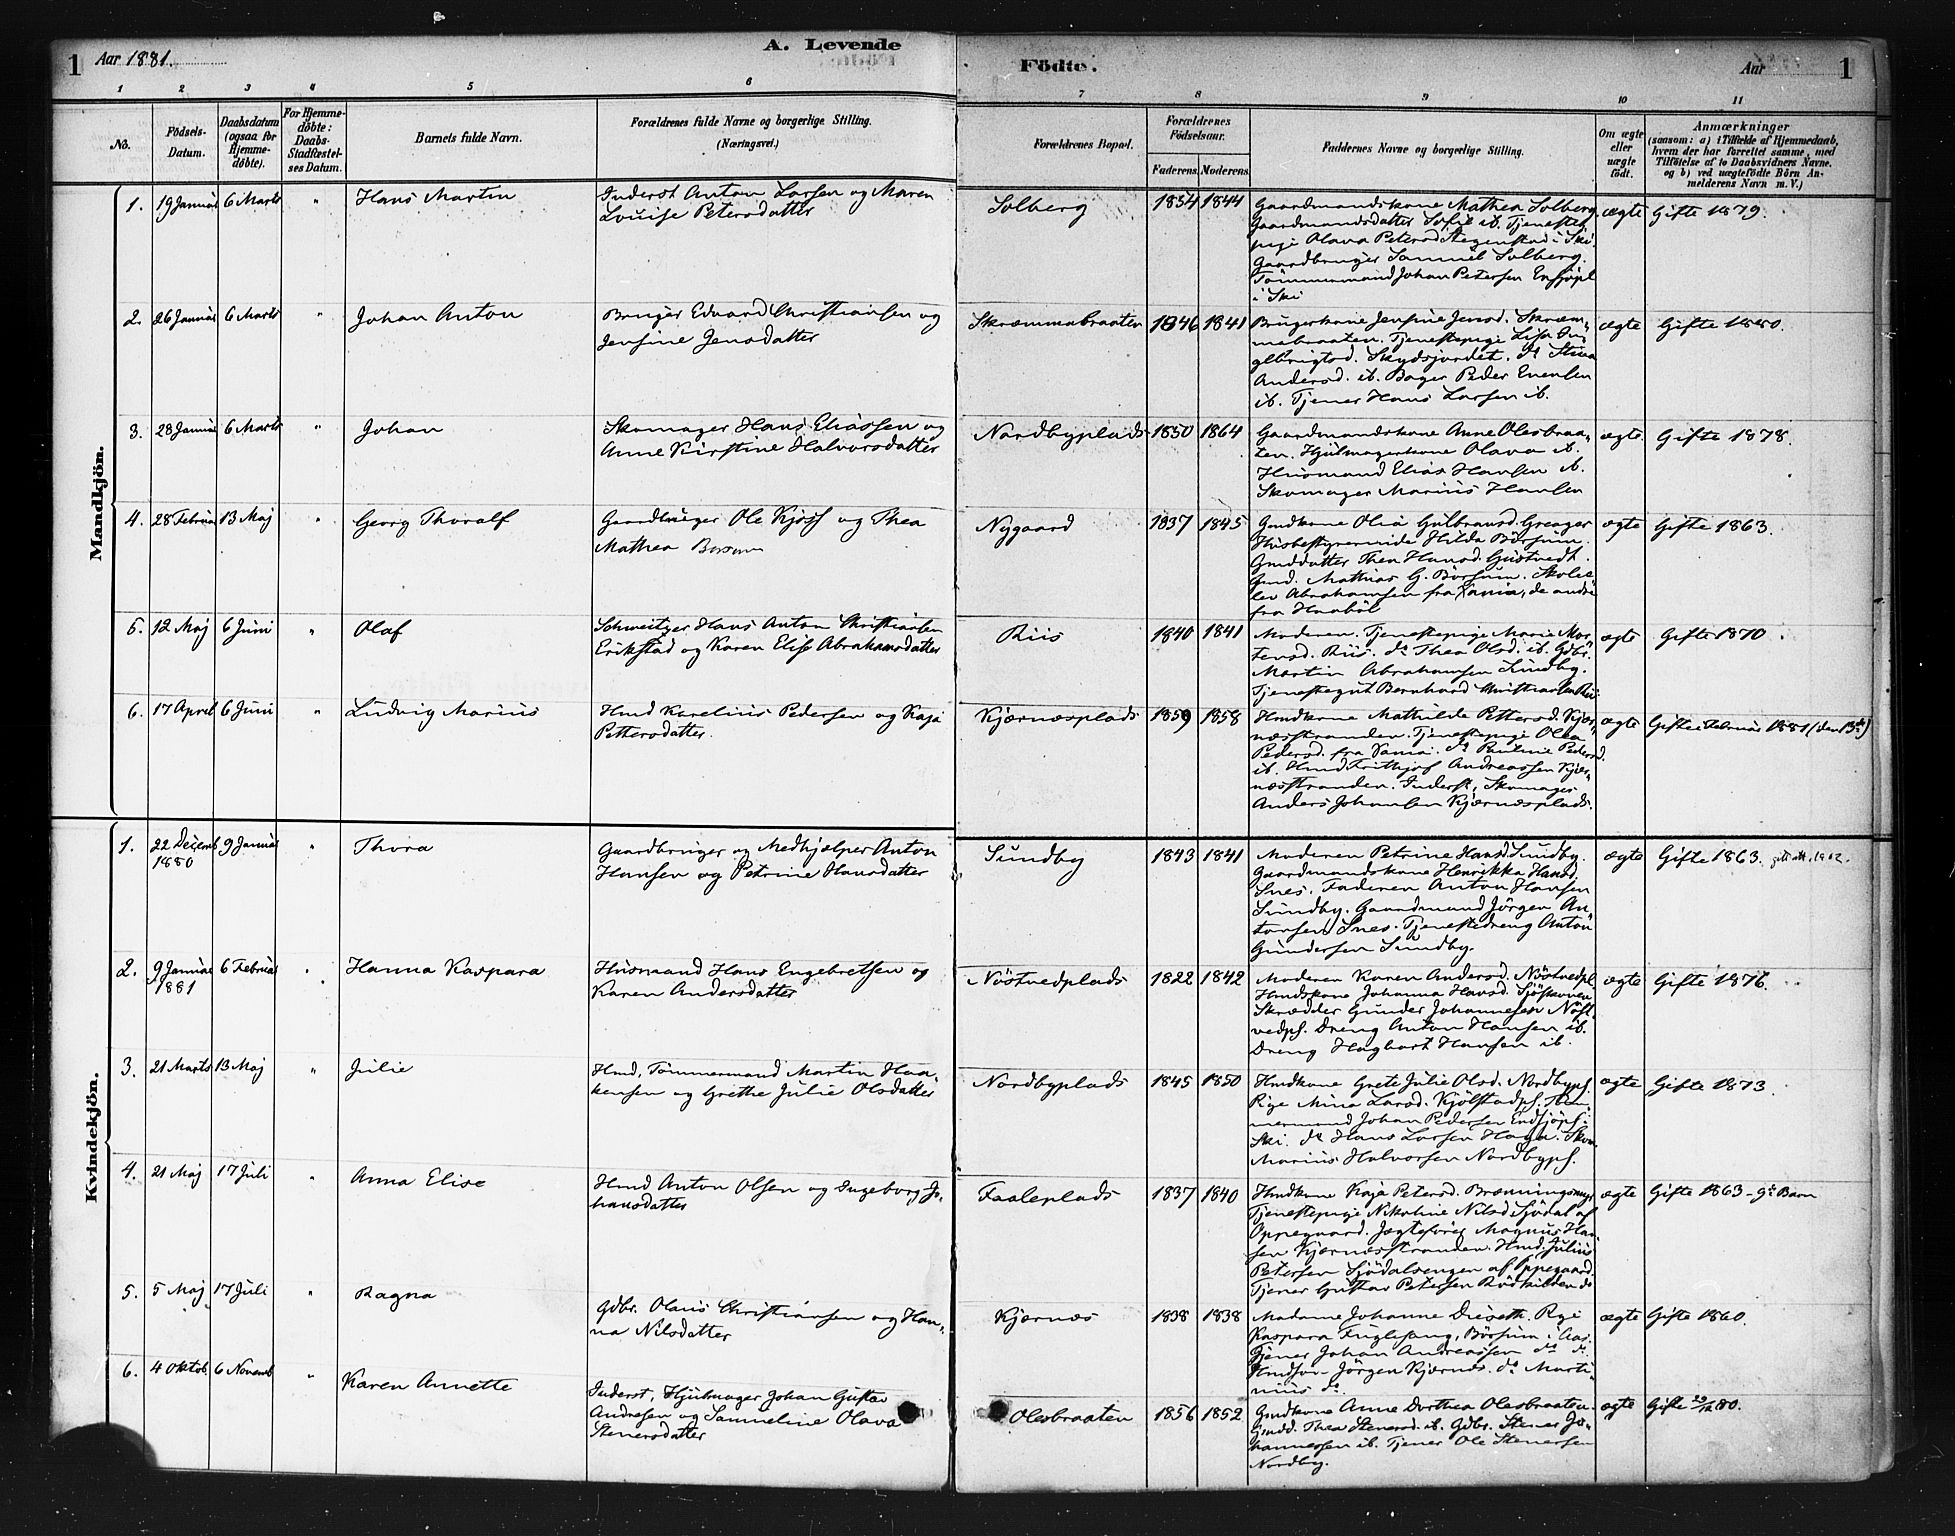 1 Aar 1881. A. Levende
Födte. Aar 1
1 2 3 4 5 6 7 8 9 10 11
No.
Födsels-
Datum.
Daabsdatum
(ogsaa for
Hjemme-
döbte).
For Hjemme-
döbte:
Daabs-
Stadfæstel-
ses Datum.
Barnets fulde Navn.
Forældrenes fulde Navne og borgerlige Stilling.
(Næringsvei.)
Forældrenes Bopæl.
Forældrenes
Födselsaar.
Faderens. Moderens.
Faddernes Navne og borgerlige Stilling.
Om ægte
eller
uægte
födt.
Anmærkninger
(saasom: a) i Tilfælde af Hjemmedaab,
hvem der har forrettet samme, med
Tilföielse af to Daabsvidners Navne,
og b) ved uægtefödte Börn An-
melderens Navn m. V.)
Mandkjön.
1. 19 Januar 6 Marts " Hans Martin
Inderst Anton Larsen og Maren
Louise Petersdatter
Solberg 1854 1844
Gaardmandskone Mathea Solberg.
Gaardmandsdatter Sofie ib. Tjeneste
pige Olava Petersd Stegenstad i Ski
Gaardbruger Samuel Solberg.
Tömmermand Johan Petersen Ensjöpl
i Ski
ægte Gifte 1879.
2. 26 Januar 6 Marts " Johan Anton
Bruger Edvard Christiansen og
Jensine Jensdatter
Skræmmabraaten 1846 1841
Brugerkone Jensine Jensd. Skræm-
mebraaten. Tjenestepige Lise In-
gebrigtsd. Skydsjordet. do Stina
Andersd. ib. Bager Peder Evensen
ib. Tjener Hans Larsen ib.
ægte Gifte 1880.
3. 28 Januar 6 Marts " Johan
Skomager Hans Eliassen og
Anne Kirstine Halvorsdatter
Nordbyplads 1850 1864
Gaardmandskone Anne Olesbraa-
ten. Hjulmagerkone Olava ib.
Husmand Elias Hansen ib.
Skomager Marius Hansen
ægte. Gifte 1878.
4. 28 Februar 13 Maj " Georg Thoralf
Gaardbruger Ole Kjoss og Thea
Mathea Borsum
Nygaard 1837 1845
Gmdkone Olia Gulbransd. Greager
Husbestyrerinde Hilda Börsum.
Gmddatter Thea Hansd. Gustvedt.
Gmd. Mathias G. Börsum. Skolee
lev Abrahamsen fra Xania, de andre
fra Haaböl
ægte Gifte 1863.
5. 12 Maj 6 Juni " Olaf
Schweitzer Hans Anton Christiansen
Erikstad og Karen Elise Abrahamsdatter
Riis 1840 1841
Moderen. Tjenestepige Marie Mor-
tensd. Riis. do Thea Olsd. ib. Gdbr.
Martin Abrahamsen Sundby.
Tjenestegut Bernhard Christiansen Riis
ægte Gifte 1870.
6. 17 April 6 Juni " Ludvig Marius
Hmd Karelius Pedersen og Kaja
Pettersdatter.
Kjærnæsplads 1859 1858
Hmdkone Mathilde Pettersd. Kjær-
næsstranden. Tjenestepige Olea
Pedersd. fra Xania. do Pauline Pedersd.
ib. Hmd Frithjof Andreassen Kjær-
næsstranden. Inderst, Skomager
Anders Johansen Kjærnæsplads.
ægte Gifte i Februar 1881 (den 13de)
Kvindekjön.
1. 22 Decemb 9 Januar " Thora
1880
Gaardbruger og Medhjælper Anton
Hansen og Petrine Hansdatter
Sundby 1843 1841
Moderen Petrine Hansd Sundby.
Gaardmandskone Henrikka Hansd.
Snes. Faderen Anton Hansen
Sundby. Gaardmand Jörgen An-
tonsen Snes. Tjenestedreng Anton
Gundersen Sundby.
ægte Gifte 1863.
2. 9 Januar 6 Februar " Hanna Kaspara
1881
Husmand Hans Engebretsen og
Karen Andersdatter
Nöstvedplads 1822 1842
Moderen Karen Andersd. Nöstvedpl
Hmdskone Johanna Hansd. Sjöskoven
Skrædder Gunder Johannesen Nöst-
vedpl. Dreng Anton Hansen ib.
Dreng Hagbart Hansen ib.
ægte Gifte 1876.
3. 21 Marts 13 Maj " Julie
Hmd, Tömmermand Martin Haa-
kensen og Grethe Julie Olsdatter
Nordbyplads 1845 1850
Hmdkone Grete Julie Olsd. Nordbypl.
Pige Mina Larsd. Kjölstadpl. Töm-
mermand Johan Pedersen Endsjöpl. i
Ski. do Hans Larsen Haga. Skom
Marius Halvorsen Nordbypl.
ægte Gifte 1873
4. 21 Maj 17 Juli " Anna Elise
Hmd Anton Olsen og Ingeborg Jo-
hansdatter
Faaleplads 1837 1840
Hmdkone Kaja Petersd. Brænningsmyr
Tjenestepige Nikoline Nilsd Sjödal af
Oppegaard. Jægtefører Magnus Han-
sen Kjærnæsstranden. Hmd. Julius
Petersen Sjödalsengen af Oppegaard.
Tjener Gustav Petersen Rödkilden do
ægte Gifte 1863 - 9de Barn
5. 5 Maj 17 Juli " Ragna
Gdbr. Olaus Christiansen og Han-
na Nilsdatter
Kjærnæs 1838 1838
Madame Johanne Diseth. Pige
Kaspara Fuglesang, Börsum i Aas.
Tjener Johan Andreassen do do.
Gmdsön Jörgen Kjærnæs. do Marti-
nius do.
ægte Gifte 1860.
6. 4 Oktob. 6 Novemb " Karen Annette
Inderst, Hjulmager Johan Gustav
Andresen og Samueline Olava
Stenersdatter
Olesbraaten 1856 1852
Gmdkone Anne Dorthea Olesbraaten.
Gmdd. Thea Stenersd. ib. Gdbr. Stener Jo-
hannessen ib. Tjener Ole Stenersen
Nordby.
ægte Gifte 29/12 80.